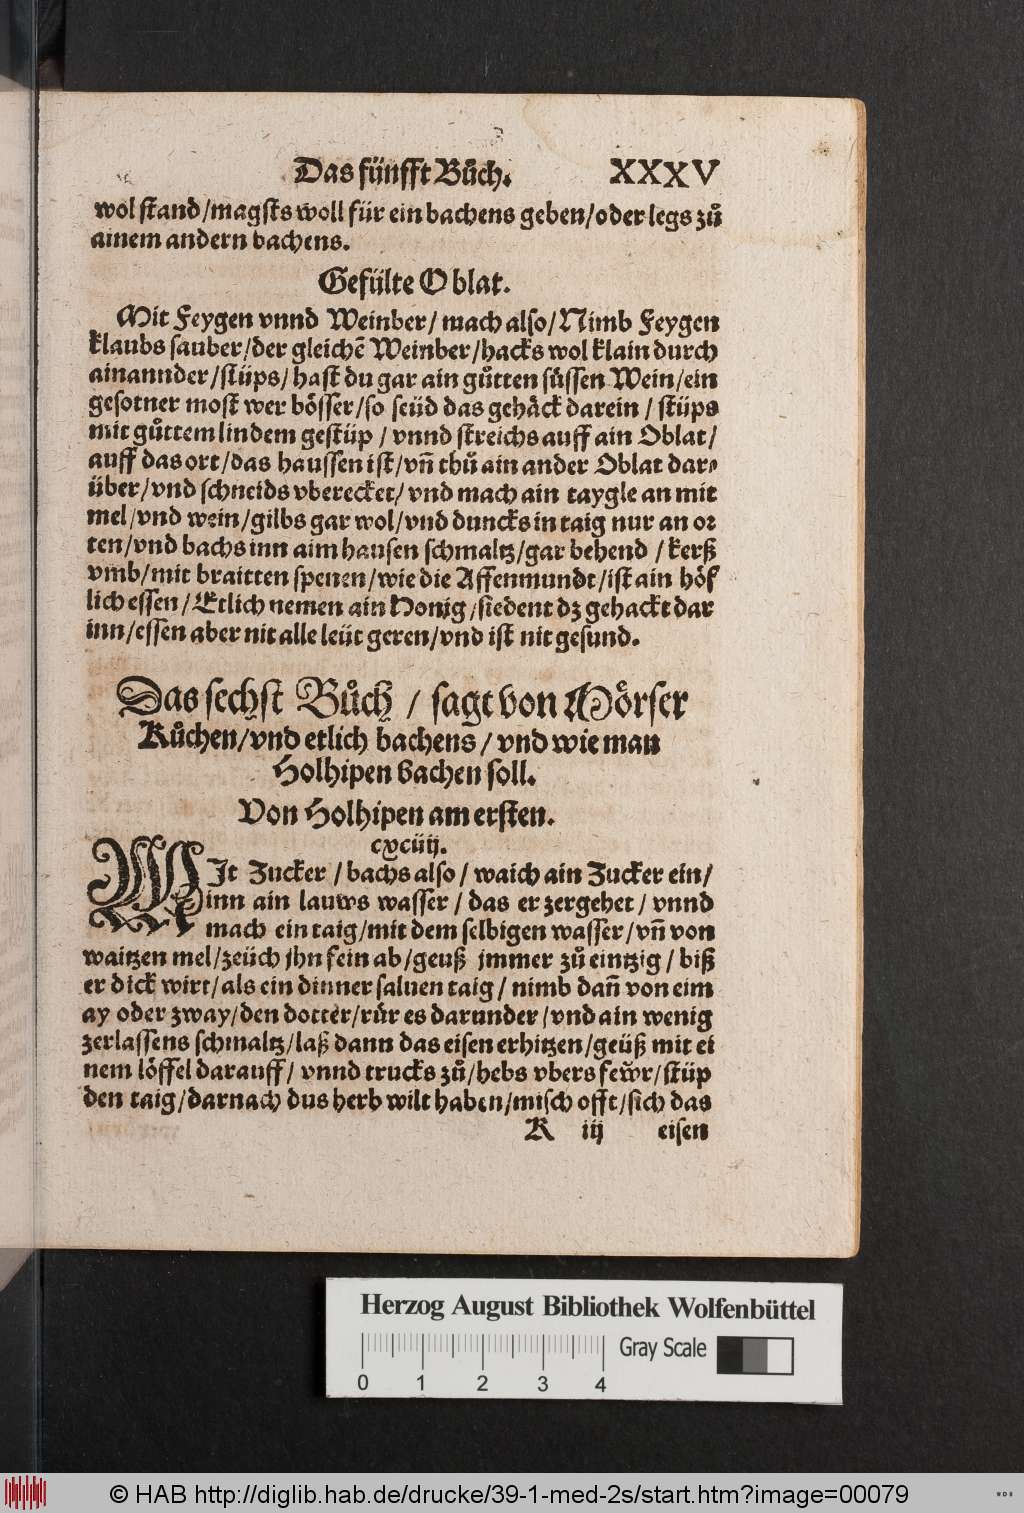 Das fünfft Bůch. XXXV
wol stand/magsts woll für ein bachens geben/oder legs zů
ainem andern bachens.
Gefülte Oblat.
Mit Feygen vnnd Weinber/ mach also/Nimb Feygen
klaubs sauber/der gleichẽ Weinber/hacks wol klain durch
ainannder/stüps/ hast du gar ain gůtten süssen Wein/ein
gesotner most wer bösser/so seüd das gehäck darein / stüps
mit gůttem lindem gestüp / vnnd streichs auff ain Oblat/
auff das ort/das haussen ist/vñ thů ain ander Oblat dar⸗
über/vnd schneids vberecket/ vnd mach ain taygle an mit
mel/vnd wein/gilbs gar wol/vnd duncks in taig nur an or
ten/vnd bachs inn aim hausen schmaltz/gar behend / kerß
vmb/mit braitten spenen/wie die Affenmundt/ist ain höf
lich essen/Etlich nemen ain Honig/siedent dz gehackt dar
inn/essen aber nit alle leüt geren/vnd ist nit gesund.
Das sechst Bůch / sagt von Mörser
Kůchen/vnd etlich bachens / vnd wie man
Holhipen bachen soll.
Von Holhipen am ersten.
cxciiij.
MIt Zucker / bachs also / waich ain Zucker ein/
inn ain lauws wasser / das er zergehet / vnnd
mach ein taig/mit dem selbigen wasser/vñ von
waitzen mel/zeüch jhn fein ab/geuß jmmer zů eintzig / biß
er dick wirt/als ein dinner saluen taig / nimb dañ von eim
ay oder zway/den dotter/rür es darunder/vnd ain wenig
zerlassens schmaltz/laß dann das eisen erhitzen/geüß mit ei
nem löffel darauff/ vnnd trucks zů/hebs vbers fewr/stüp
den taig/darnach dus herb wilt haben/misch offt/sich das
K iij eisen
Herzog August Bibliothek Wolfenbüttel
Gray Scale
0 1 2 3 4
© HAB http://diglib.hab.de/drucke/39-1-med-2s/start.htm?image=00079